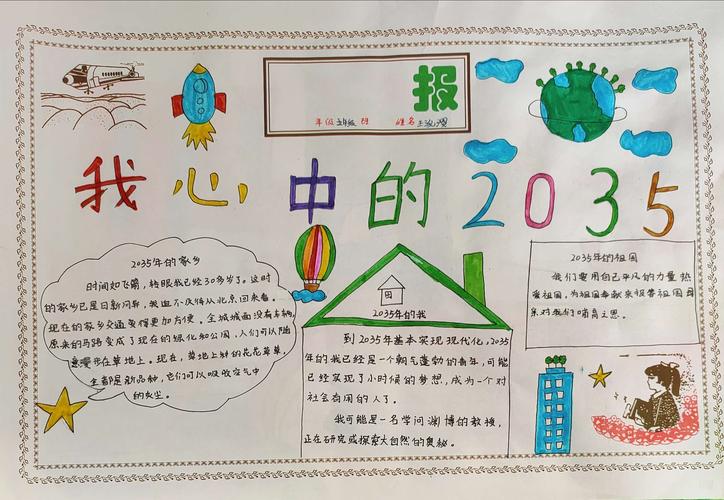 报
年级 五年级 班 姓名 王
我心中的2035
2035年的家乡
时间如飞箭,转眼我已经30多岁了。这时
的家乡已是日新月异,我迫不及待从北京回来看。
现在的家乡交通变得更加方便。全城城面没有车辆,
原来的马路变成了现在的绿化和公园,人们可以随
意漫步在草地上。现在,草地上种的花花草草,
全都是新品种,它们可以吸收空气中
的灰尘。
2035年的我
到2035年基本实现现代化,2035
年的我已经是一个朝气蓬勃的青年,可能
已经实现了小时候的梦想,成为一个对
社会有用的人了。
我可能是一名学问渊博的教授,
正在研究或探索大自然的奥秘。
2035年的祖国
我们要用自己平凡的力量热
爱祖国,为祖国奉献来报答祖国母
亲对我们哺育之恩。